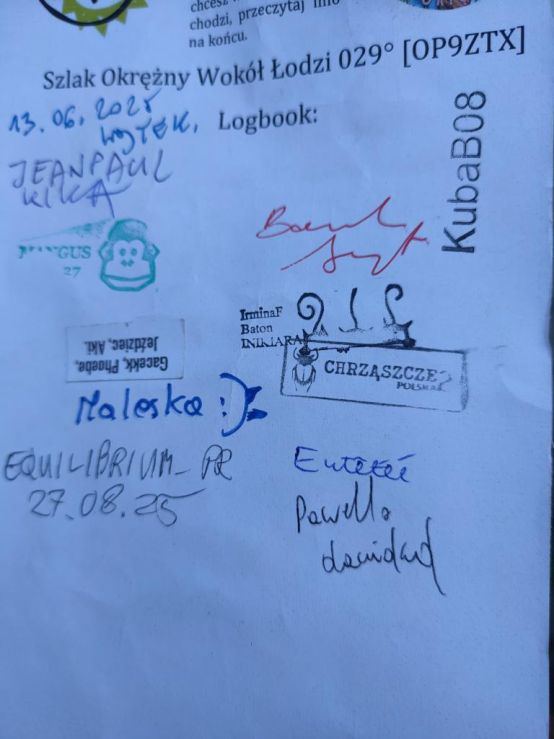 chcesz
chodzi, przeczytaj info
na końcu.
Szlak Okrężny Wokół Łodzi 029° [OP9ZTX]
13.06.2025
WOJTEK, Logbook:
KubaB08
JEANPAUL
KIKA
GUS
27
IrminaF
Baton
INKIARA
Gacekk, Phoebe,
Jeździec, Aki.
CHRZĄSZCZE
POLSKA
Maleska :)
EQUILIBRIUM_PR
27.08.25
Pawello
dawidad